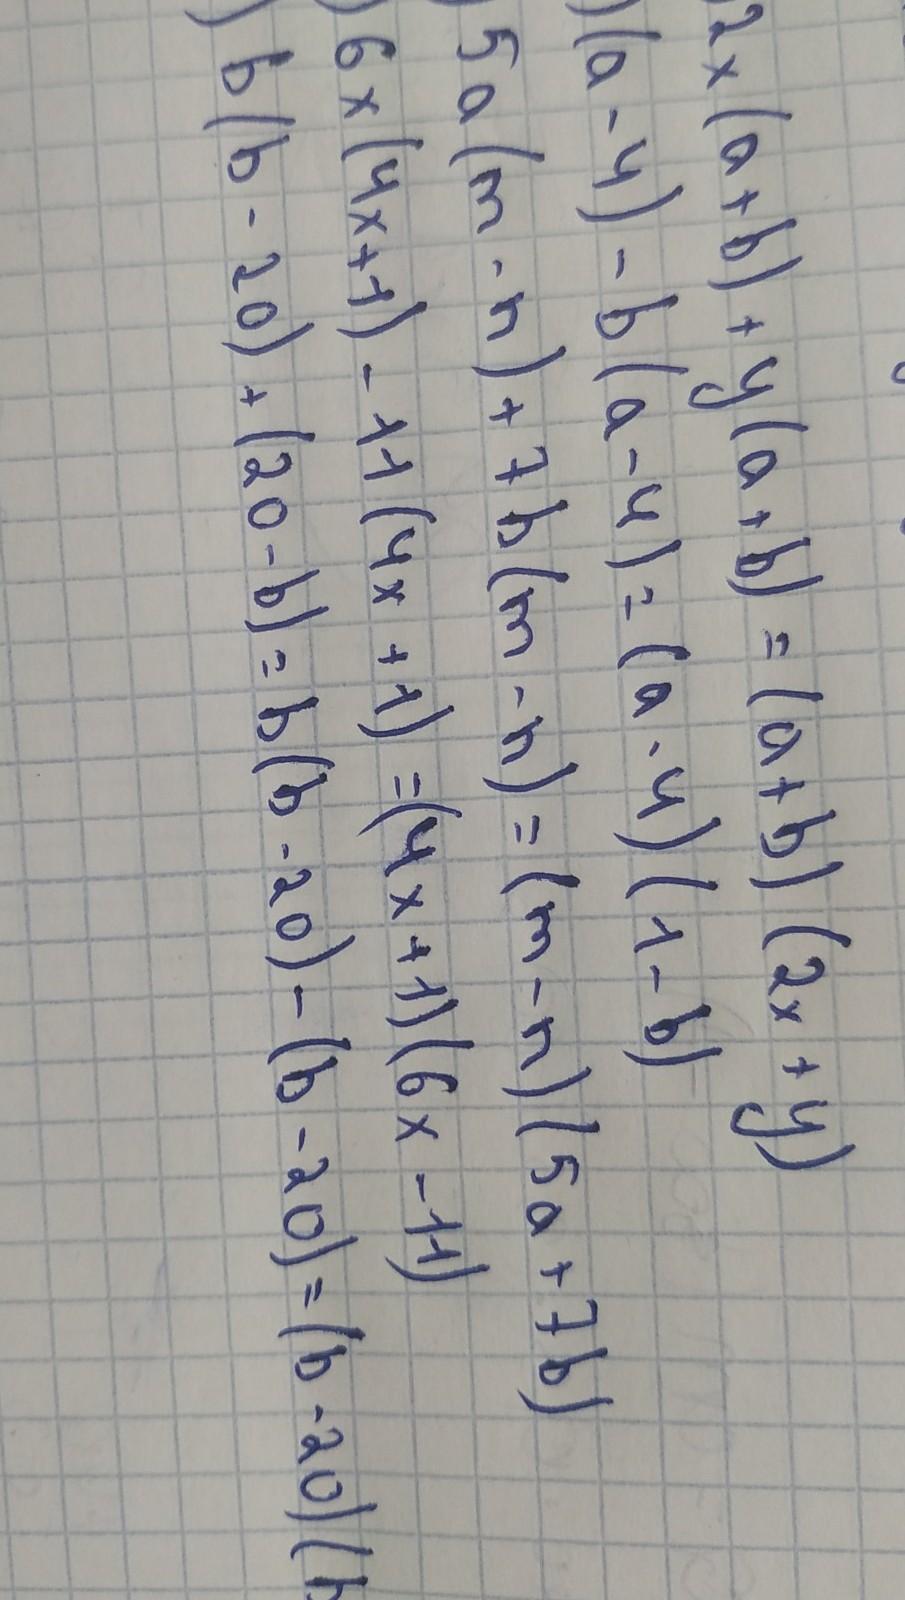 2x(a+b)+y(a+b)=(a+b)(2x+y)
)(a-4)-b(a-4)=(a-4)(1-b)
)5a(m-n)+7b(m-n)=(m-n)(5a+7b)
)6x(4x+1)-11(4x+1)=(4x+1)(6x-11)
)b(b-20)+(20-b)=b(b-20)-(b-20)=(b-20)(b